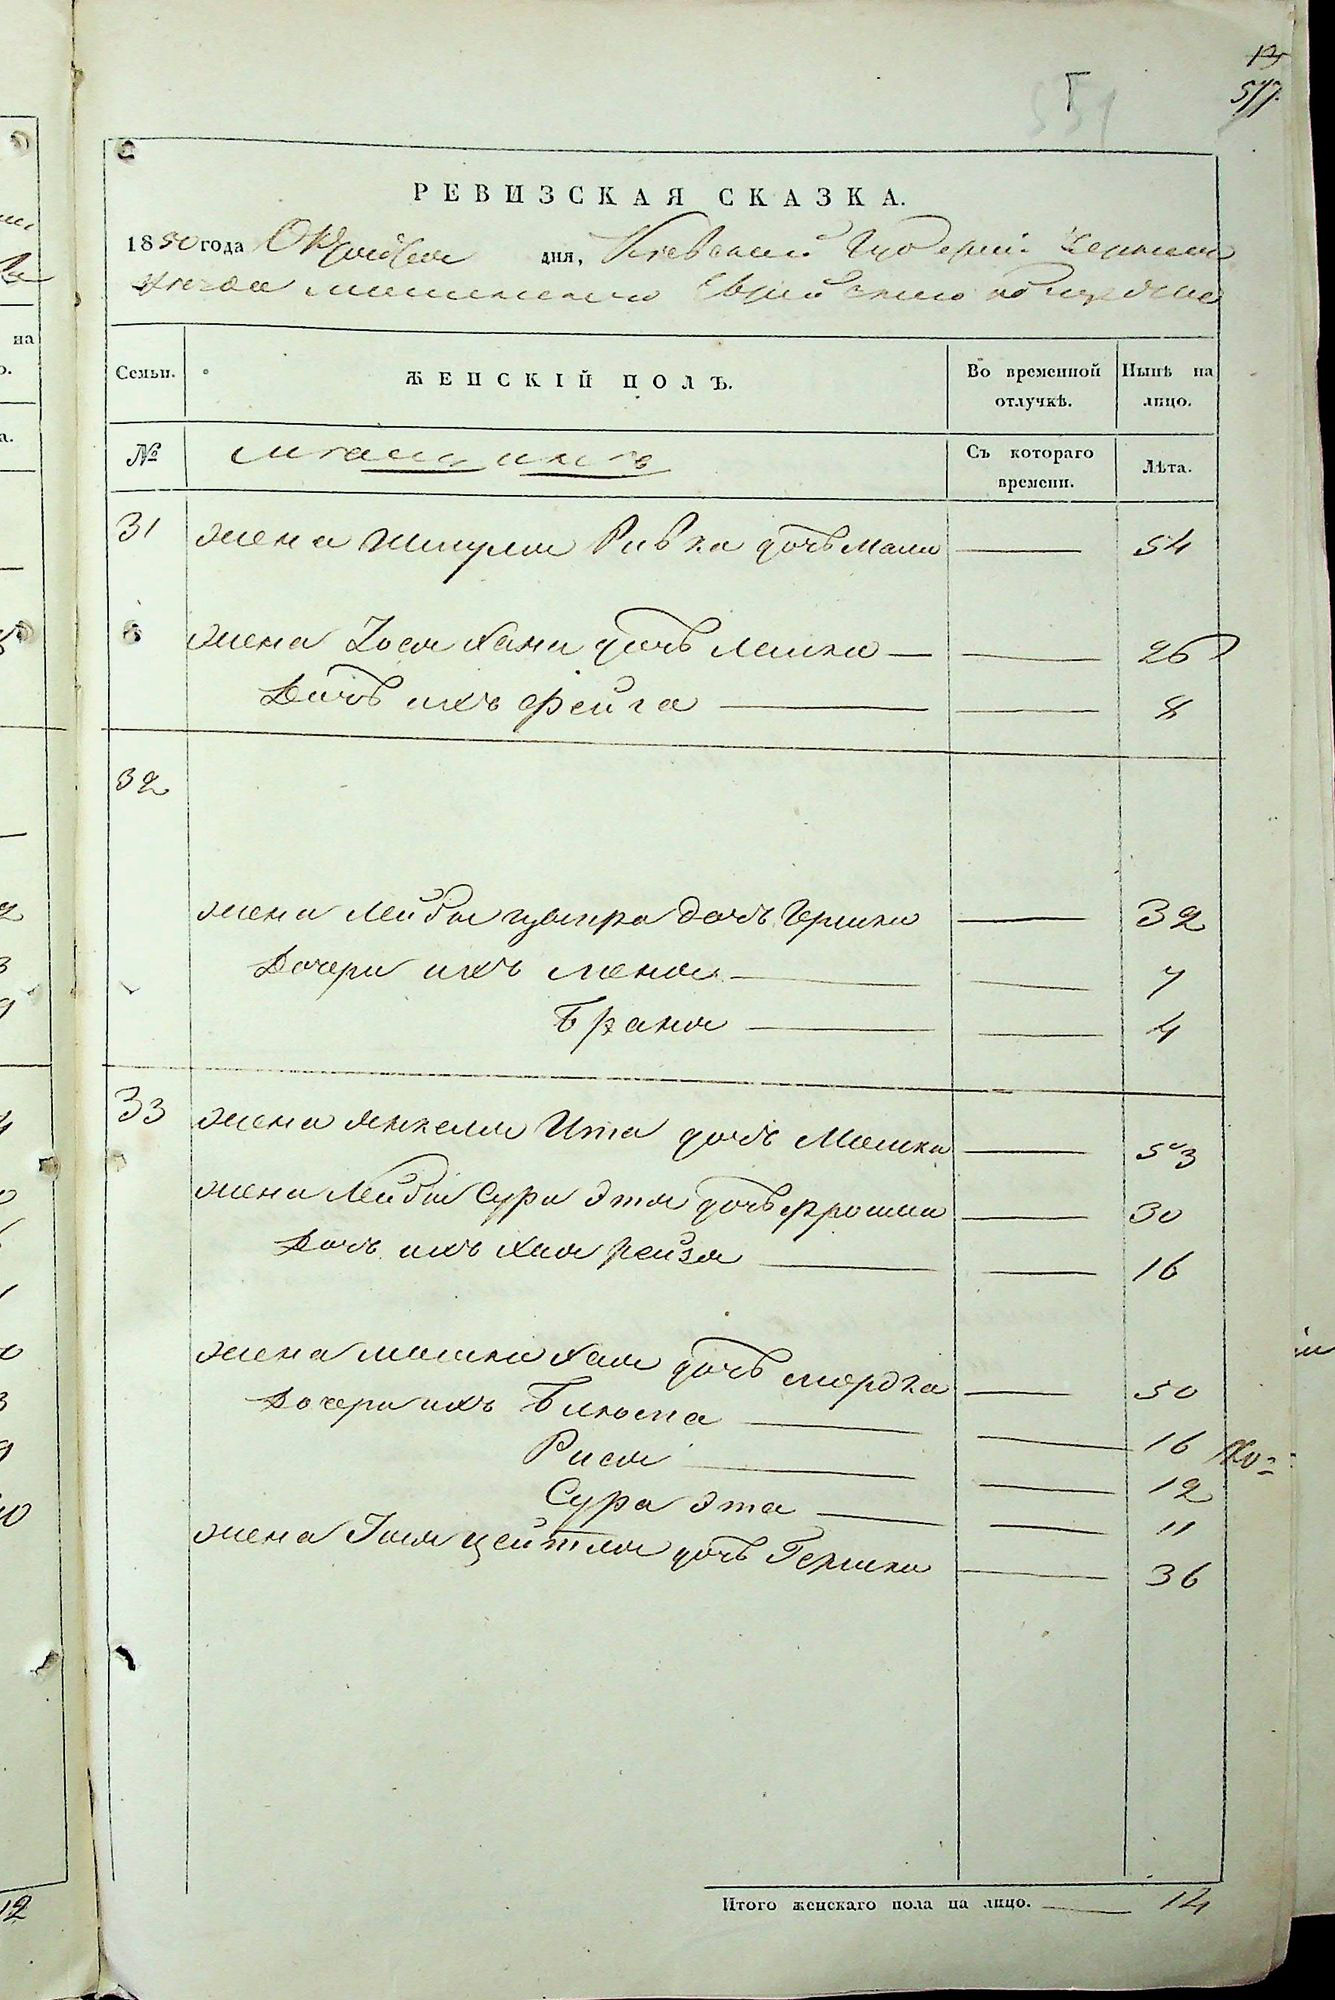 13
577.
551
РЕВИЗСКАЯ СКАЗКА.
1850 года Октября дня, Киевской Губернии Черкаск
уезда Еврейского общества
Семьи. ЖЕНСКІЙ ПОЛЪ. Во временной отлучкѣ. Нынѣ на лицо.
№ Съ котораго времени. Лѣта.
31 жена Шмуля Ривка дочь — 54
жена Іося Хана дочь — — 26
Дочь ихъ Фейга — — 8
32
жена Лейбы Цыпра дочь Гершка — 32
Дочери ихъ — — 7
Брана — — 4
33 жена Янкеля Ита дочь Мошка — 53
жена Лейбы Сура Этя дочь — 30
Дочь ихъ Хая Рейзя — — 16
жена Мошка Хая дочь Мордка — 50
Дочери ихъ Блюма — — 16
Рися — — 12
Сура Эта — — 11
жена Іося Цейтля дочь Гершка — 36
Итого женскаго пола на лицо. — 14